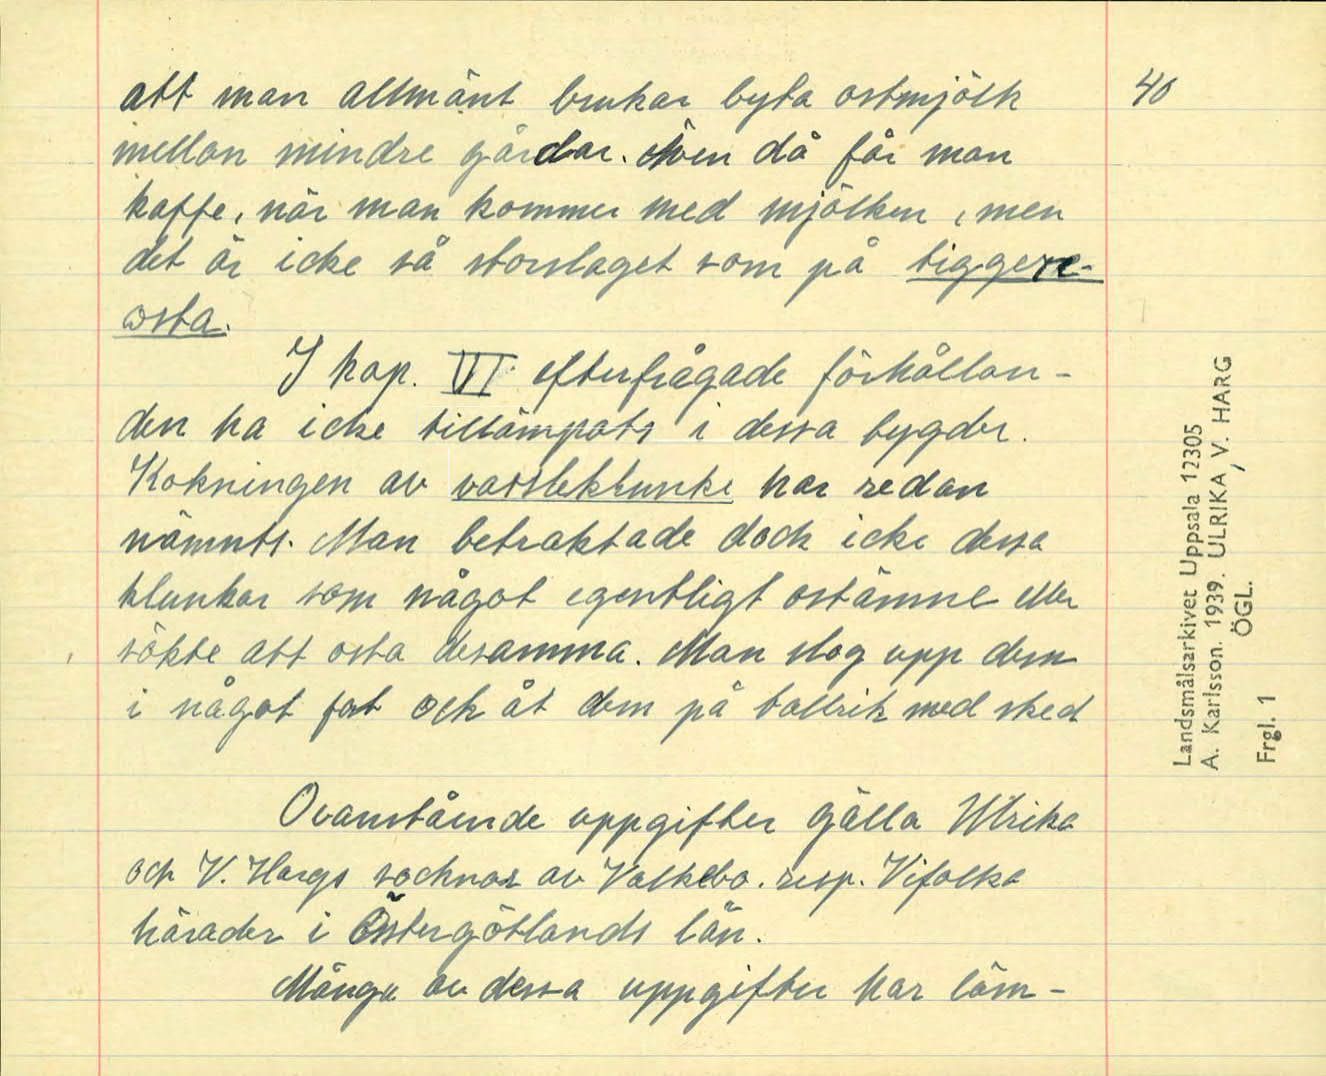 att man allmänt brukar byta ostmjölk
mellan mindre gårdar. Även då får man
kaffe, när man kommer med mjölken, men
det är icke så storslaget som på tiggere-
osta.
I kap. VI efterfrågade förhållan-
den ha icke tillämpats i dessa bygder.
Kokningen av varsleklunke har redan
nämnts. Man betraktade dock icke dessa
klunkar som något egentligt ostämne eller
sökte att osta desamma. Man slog upp dem
i något fat och åt dem på tallrik med sked
Ovanstående uppgifter gälla Ulrika
och V. Hargs socknar av Valkebo. resp. Vifolka
härader i Östergötlands län.
Många av dessa uppgifter har läm-
40
Landsmålsarkivet Uppsala 12305
A. Karlsson. 1939. ULRIKA, V. HARG
ÖGL.
Frgl. 1